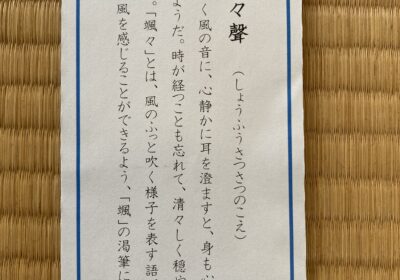 々聲　(しょうふうさつさつのこえ)
く風の音に、心静かに耳を澄ますと、身も
ようだ。時が経つことも忘れて、清々しく穏
。「颯々」とは、風のふっと吹く様子を表す語
風を感じることができるよう、「颯」の渇筆に